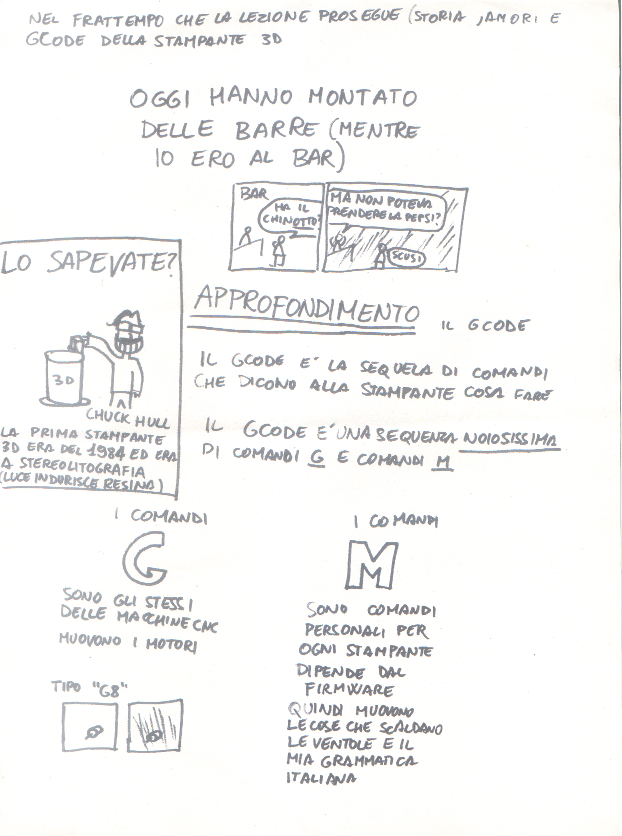 NEL FRATTEMPO CHE LA LEZIONE PROSEGUE (STORIA, AMORI E
GCODE DELLA STAMPANTE 3D
OGGI HANNO MONTATO
DELLE BARRE (MENTRE
IO ERO AL BAR)
BAR
HA IL
CHINOTTO?
MA NON POTEVA
PRENDERE LA PEPSI?
SCUSI
LO SAPEVATE?
3D
CHUCK HULL
LA PRIMA STAMPANTE
3D ERA DEL 1984 ED ERA
A STEREOLITOGRAFIA
(LUCE INDURISCE RESINA)
APPROFONDIMENTO IL GCODE
IL GCODE E' LA SEQUELA DI COMANDI
CHE DICONO ALLA STAMPANTE COSA FARE
IL GCODE E' UNA SEQUENZA NOIOSISSIMA
DI COMANDI G E COMANDI M
I COMANDI
G
SONO GLI STESSI
DELLE MACCHINE CNC
MUOVONO I MOTORI
TIPO "G8"
I COMANDI
M
SONO COMANDI
PERSONALI PER
OGNI STAMPANTE
DIPENDE DAL
FIRMWARE
QUINDI MUOVONO
LE COSE CHE SCALDANO
LE VENTOLE E IL
MIA GRAMMATICA
ITALIANA